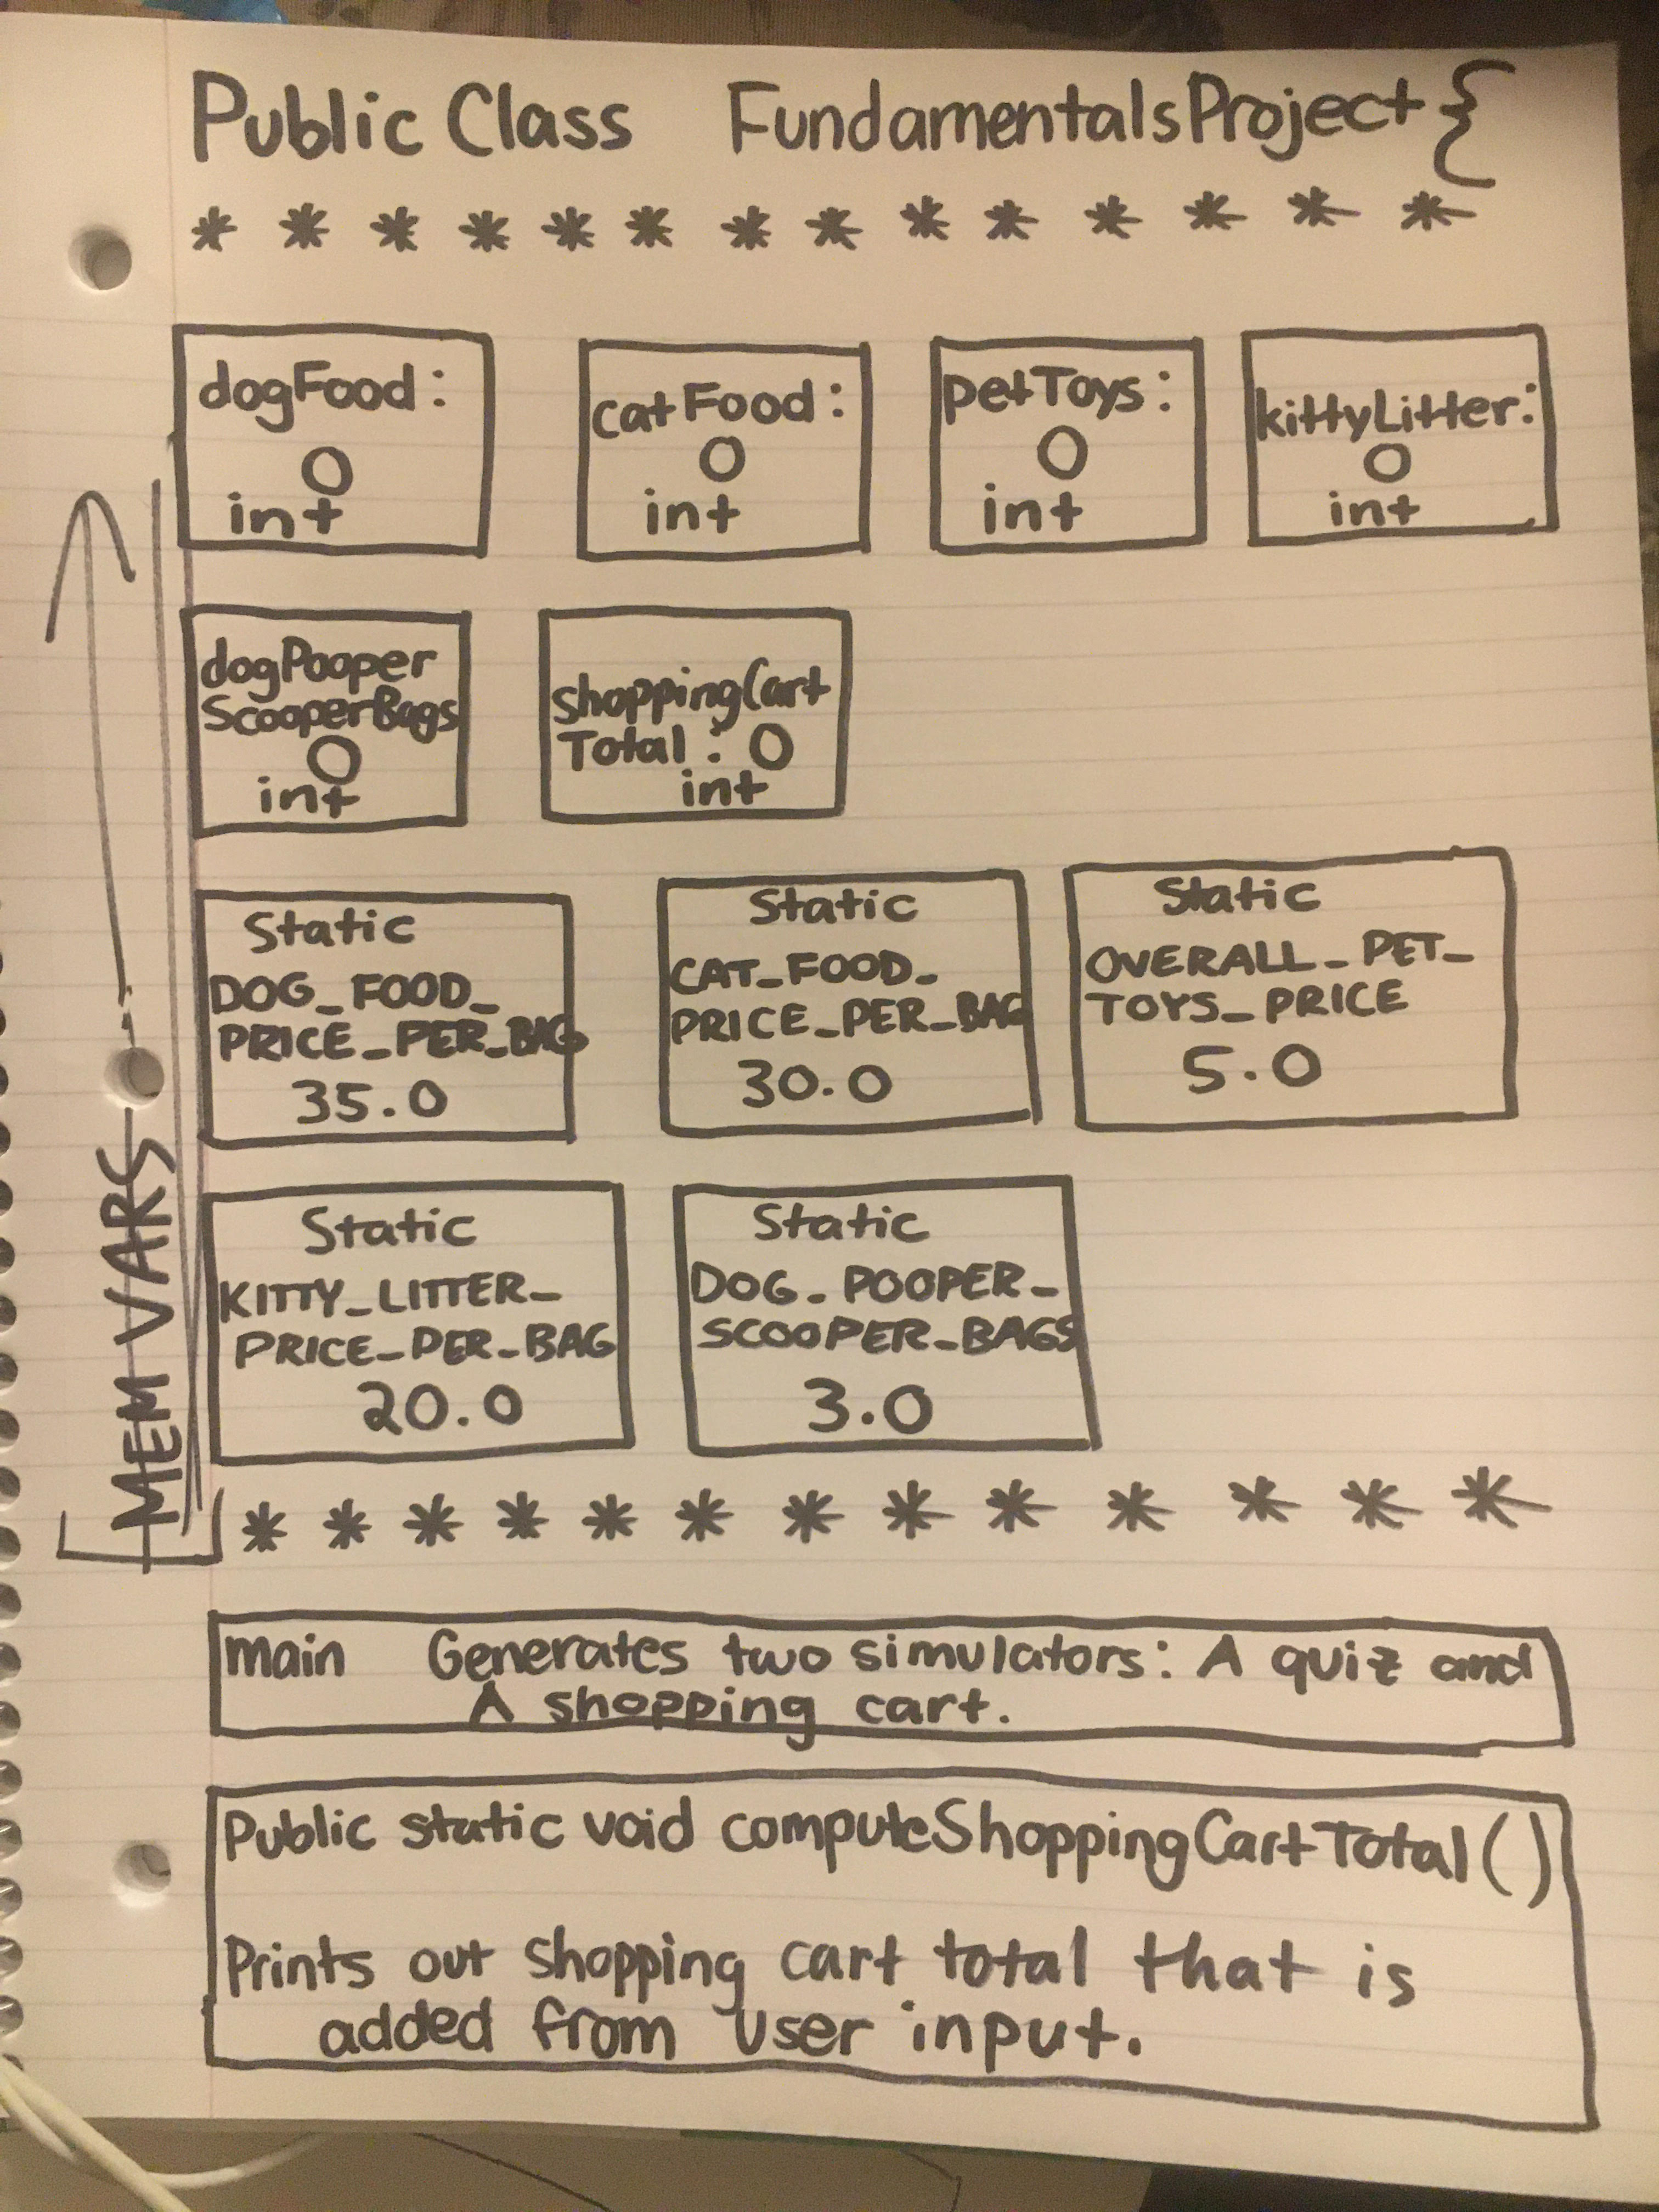 Public Class FundamentalsProject {
* * * * * * * * * * * * * *
dogFood:
0
int
catFood:
0
int
petToys:
0
int
kittyLitter:
0
int
dogPooper
ScooperBags
0
int
shoppingCart
Total: 0
int
Static
DOG_FOOD_
PRICE_PER_BAG
35.0
Static
CAT_FOOD_
PRICE_PER_BAG
30.0
Static
OVERALL_PET_
TOYS_PRICE
5.0
Static
KITTY_LITTER_
PRICE_PER_BAG
20.0
Static
DOG_POOPER_
SCOOPER_BAGS
3.0
MEM VARS
* * * * * * * * * * * * *
main Generates two simulators: A quiz and
A shopping cart.
Public static void computeShoppingCartTotal()
Prints out shopping cart total that is
added from user input.